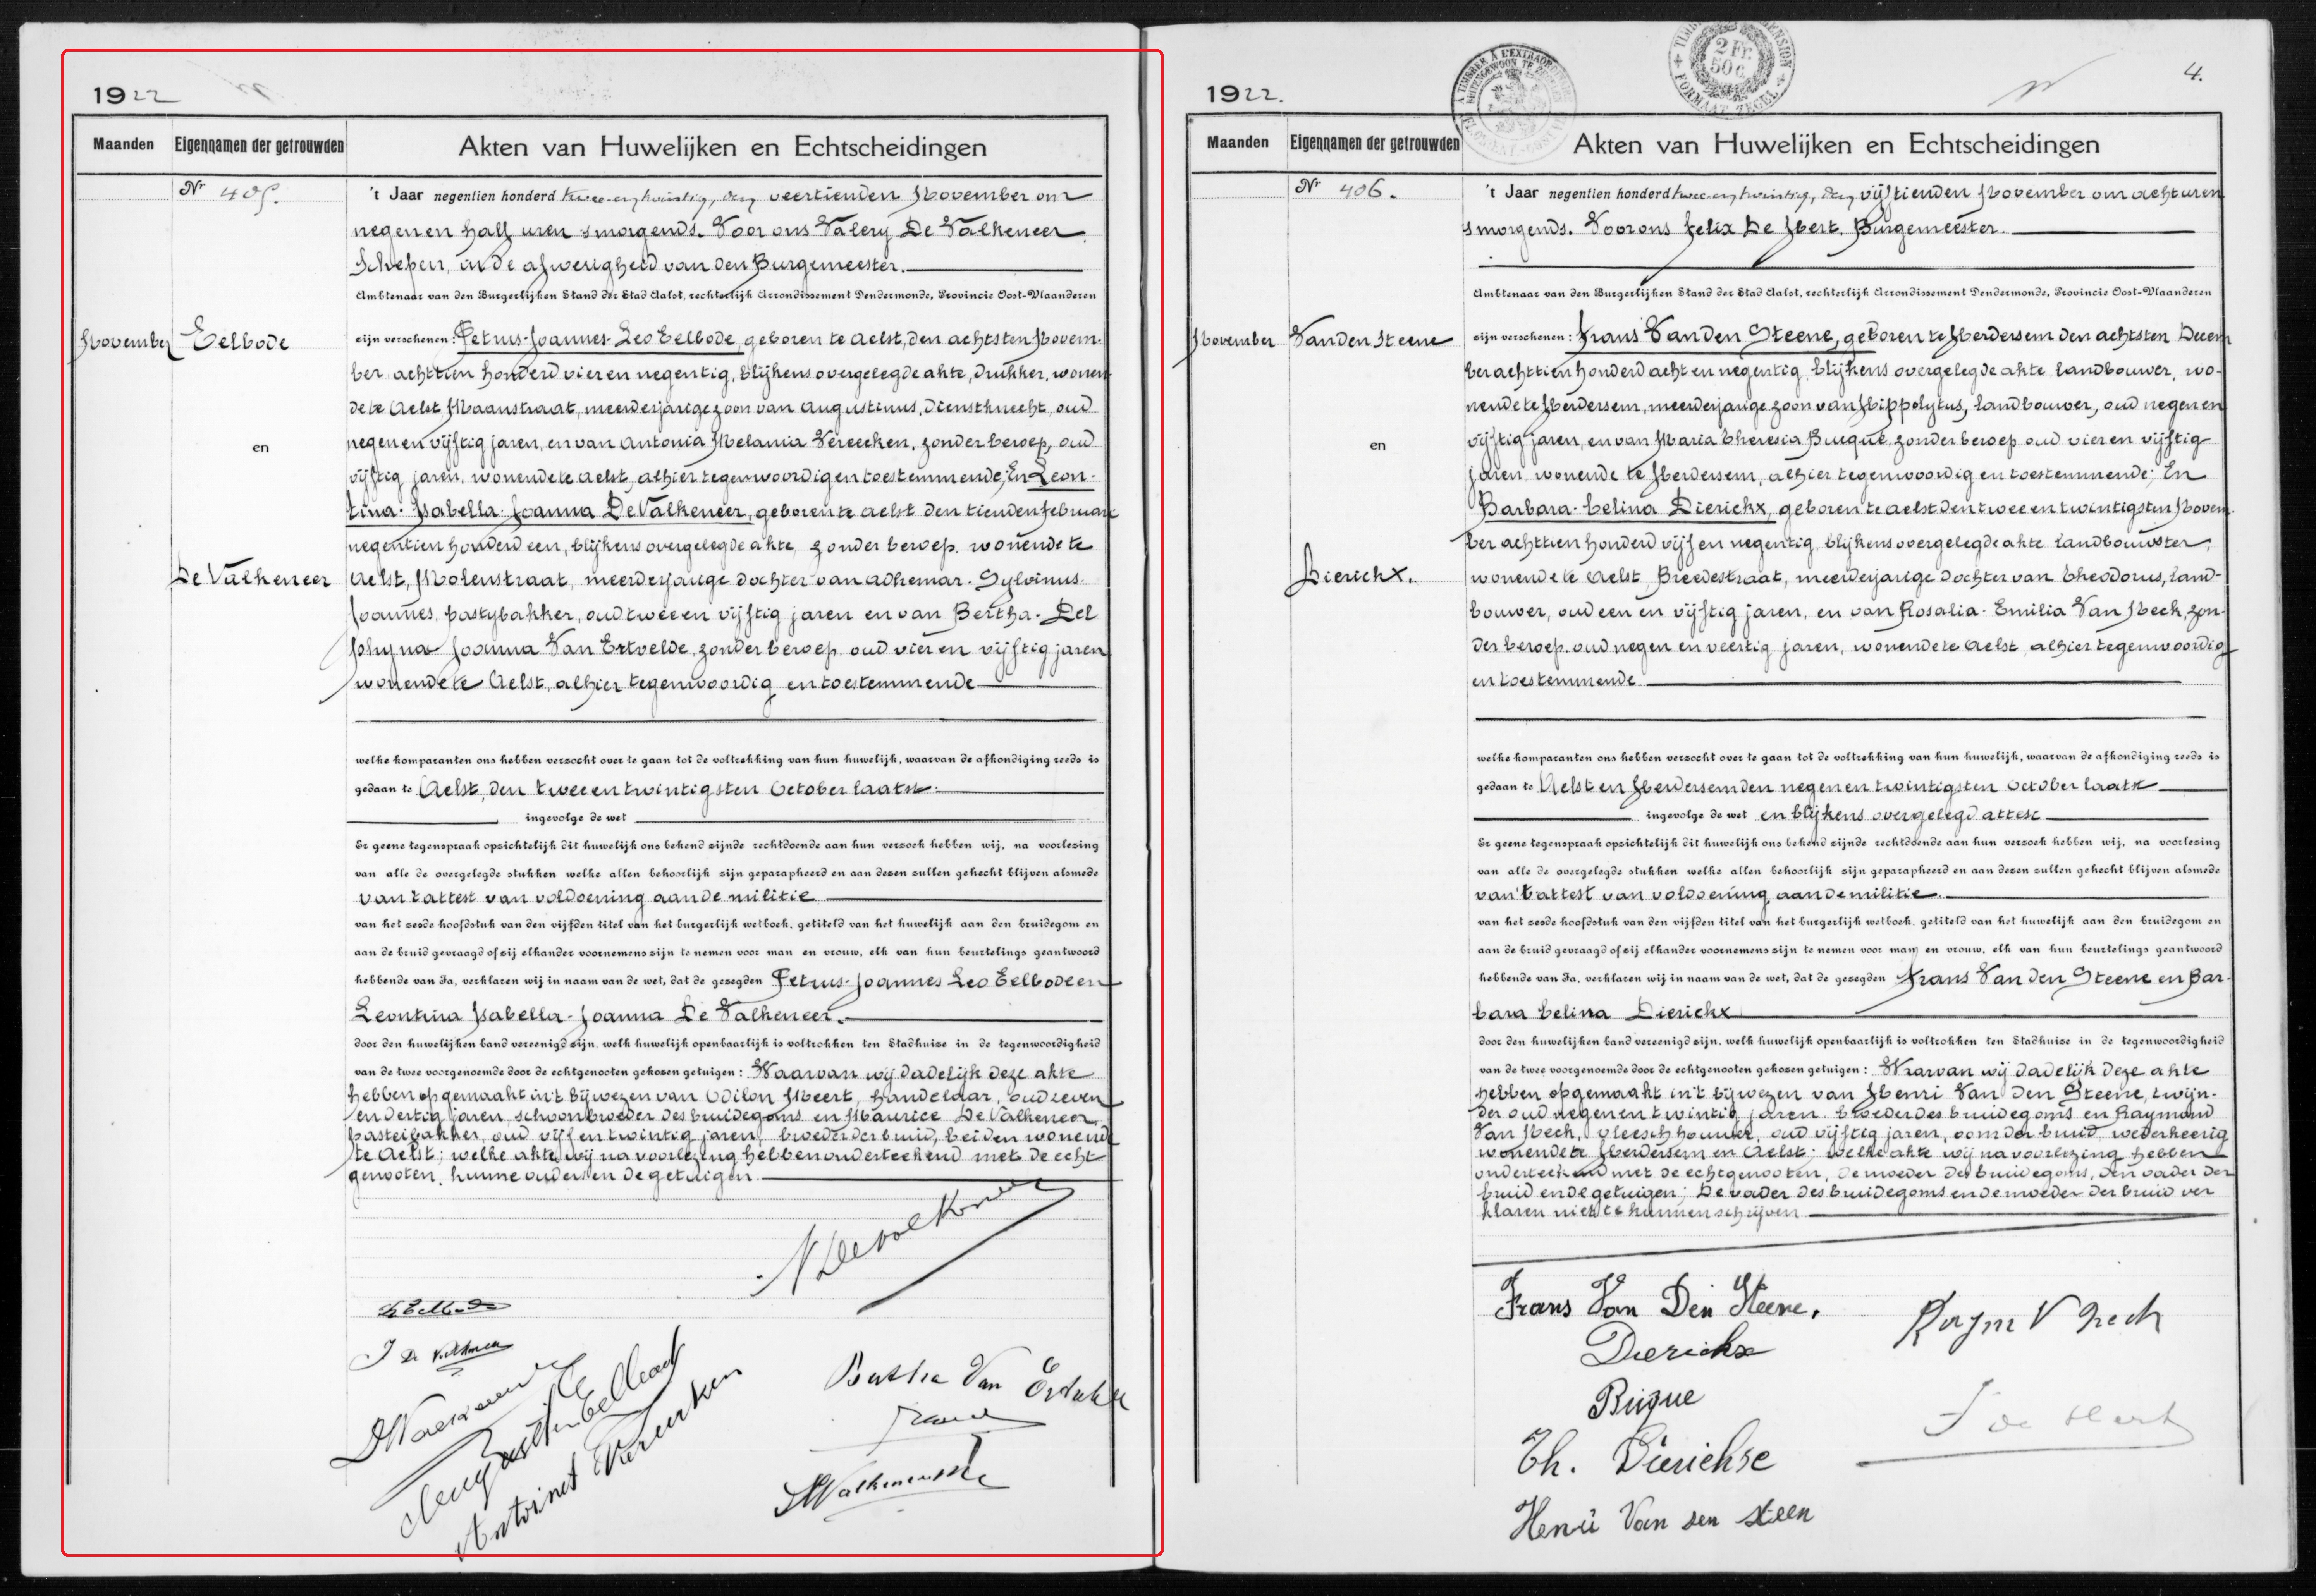 1922
Maanden Eigennamen der getrouwden Akten van Huwelijken en Echtscheidingen
Nr 405.
't Jaar negentien honderd twee-en-twintig, den veertienden November om
negen en half uren 's morgends. Voor ons Valery De Valkeneer
Schepen, in de afwezigheid van den Burgemeester.
Ambtenaar van den Burgerlijken Stand der Stad Aalst, rechterlijk Arrondissement Dendermonde, Provincie Oost-Vlaanderen
November Eelbode
en
De Valkeneer
zijn verschenen: Petrus-Joannes-Leo Eelbode, geboren te Aelst, den achtsten Novem-
ber achttien honderd vier en negentig, blijkens overgelegde akte, drukker, wonen
de te Aelst Maanstraat, meerderjarige zoon van Augustinus, dienstknecht, oud
negen en vijftig jaren, en van Antonia Melania Vereecken, zonder beroep, oud
vijftig jaren, wonende te Aelst, alhier tegenwoordig en toestemmende; En Leon-
tina-Isabella-Joanna De Valkeneer, geboren te Aelst den tienden februari
negentien honderd een, blijkens overgelegde akte, zonder beroep, wonende te
Aelst, Molenstraat, meerderjarige dochter van Adhemar-Sylvinus-
Joannes, pastybakker, oud twee en vijftig jaren en van Bertha-Del
phyna Joanna Van Ertvelde, zonder beroep, oud vier en vijftig jaren
wonende te Aelst, alhier tegenwoordig en toestemmende
welke komparanten ons hebben verzocht over te gaan tot de voltrekking van hun huwelijk, waarvan de afkondiging reeds is
gedaan te Aelst, den twee en twintigsten October laatst.
ingevolge de wet
Er geene tegenspraak opzichtelijk dit huwelijk ons bekend zijnde rechtdoende aan hun verzoek hebben wij, na voorlezing
van alle de overgelegde stukken welke allen behoorlijk zijn geparapheerd en aan dezen zullen gehecht blijven alsmede
van 't attest van voldoening aan de militie
van het zesde hoofdstuk van den vijfden titel van het burgerlijk wetboek, getiteld van het huwelijk aan den bruidegom en
aan de bruid gevraagd of zij elkander voornemens zijn te nemen voor man en vrouw, elk van hun beurtelings geantwoord
hebbende van Ja, verklaren wij in naam van de wet, dat de gezegden Petrus-Joannes Leo Eelbode en
Leontina Isabella-Joanna De Valkeneer.
door den huwelijken band vereenigd zijn, welk huwelijk openbaarlijk is voltrokken ten Stadhuize in de tegenwoordigheid
van de twee voorgenoemde door de echtgenooten gekozen getuigen: Waarvan wij dadelijk deze akte
hebben opgemaakt in 't bijwezen van Odilon Meert, handelaar, oud zeven
en dertig jaren, schoonbroeder des bruidegoms en Maurice De Valkeneer,
pasteibakker, oud vijf en twintig jaren, broeder der bruid, beiden wonende
te Aelst; welke akte wij na voorlezing hebben onderteekend met de echt
genooten, hunne ouders en de getuigen.
Bertha Van Ertvelde
Antoinet Vereecken
1922.
4.
2 Fr.
50 c
FORMAAT ZEGEL
Maanden Eigennamen der getrouwden Akten van Huwelijken en Echtscheidingen
Nr 406.
't Jaar negentien honderd twee-en-twintig, den vijftienden November om acht uren
's morgends. Voor ons Felix De Hert, Burgemeester.
Ambtenaar van den Burgerlijken Stand der Stad Aalst, rechterlijk Arrondissement Dendermonde, Provincie Oost-Vlaanderen
November Van den Steene
en
Dierickx.
zijn verschenen: Frans Van den Steene, geboren te Herdersem den achtsten Decem
ber achttien honderd acht en negentig, blijkens overgelegde akte landbouwer, wo-
nende te Herdersem, meerderjarige zoon van Hippolytus, landbouwer, oud negen en
vijftig jaren, en van Maria Theresia Buique, zonder beroep oud vier en vijftig
jaren, wonende te Herdersem, alhier tegenwoordig en toestemmende; En
Barbara-Celina Dierickx, geboren te Aelst den twee en twintigsten Novem-
ber achttien honderd vijf en negentig, blijkens overgelegde akte landbouwster,
wonende te Aelst, Breedestraat, meerderjarige dochter van Theodorus, land-
bouwer, oud een en vijftig jaren, en van Rosalia-Emilia Van Neck, zon-
der beroep, oud negen en veertig jaren, wonende te Aelst, alhier tegenwoordig
en toestemmende
welke komparanten ons hebben verzocht over te gaan tot de voltrekking van hun huwelijk, waarvan de afkondiging reeds is
gedaan te Aelst en Herdersem den negen en twintigsten October laatst
ingevolge de wet en blijkens overgelegd attest
Er geene tegenspraak opzichtelijk dit huwelijk ons bekend zijnde rechtdoende aan hun verzoek hebben wij, na voorlezing
van alle de overgelegde stukken welke allen behoorlijk zijn geparapheerd en aan dezen zullen gehecht blijven alsmede
van 't attest van voldoening aan de militie.
van het zesde hoofdstuk van den vijfden titel van het burgerlijk wetboek, getiteld van het huwelijk aan den bruidegom en
aan de bruid gevraagd of zij elkander voornemens zijn te nemen voor man en vrouw, elk van hun beurtelings geantwoord
hebbende van Ja, verklaren wij in naam van de wet, dat de gezegden Frans Van den Steene en Bar-
bara Celina Dierickx
door den huwelijken band vereenigd zijn, welk huwelijk openbaarlijk is voltrokken ten Stadhuize in de tegenwoordigheid
van de twee voorgenoemde door de echtgenooten gekozen getuigen: Waarvan wij dadelijk deze akte
hebben opgemaakt in 't bijwezen van Henri Van Den Steene, twijn-
der oud negen en twintig jaren broeder des bruidegoms en Raymond
Van Neck, vleeschhouwer, oud vijftig jaren, oom der bruid, wederkeerig
wonende te Herdersem en Aelst; welke akte wij na voorlezing hebben
onderteekend met de echtgenooten, de moeder des bruidegoms, den vader der
bruid en de getuigen; De vader des bruidegoms en de moeder der bruid ver
klaren niet te kunnen schrijven
Frans Van Den Steene.
Dierickx
Buique
Th. Dierickse
Henri Van den steen
Raym V Neck
F de Hert